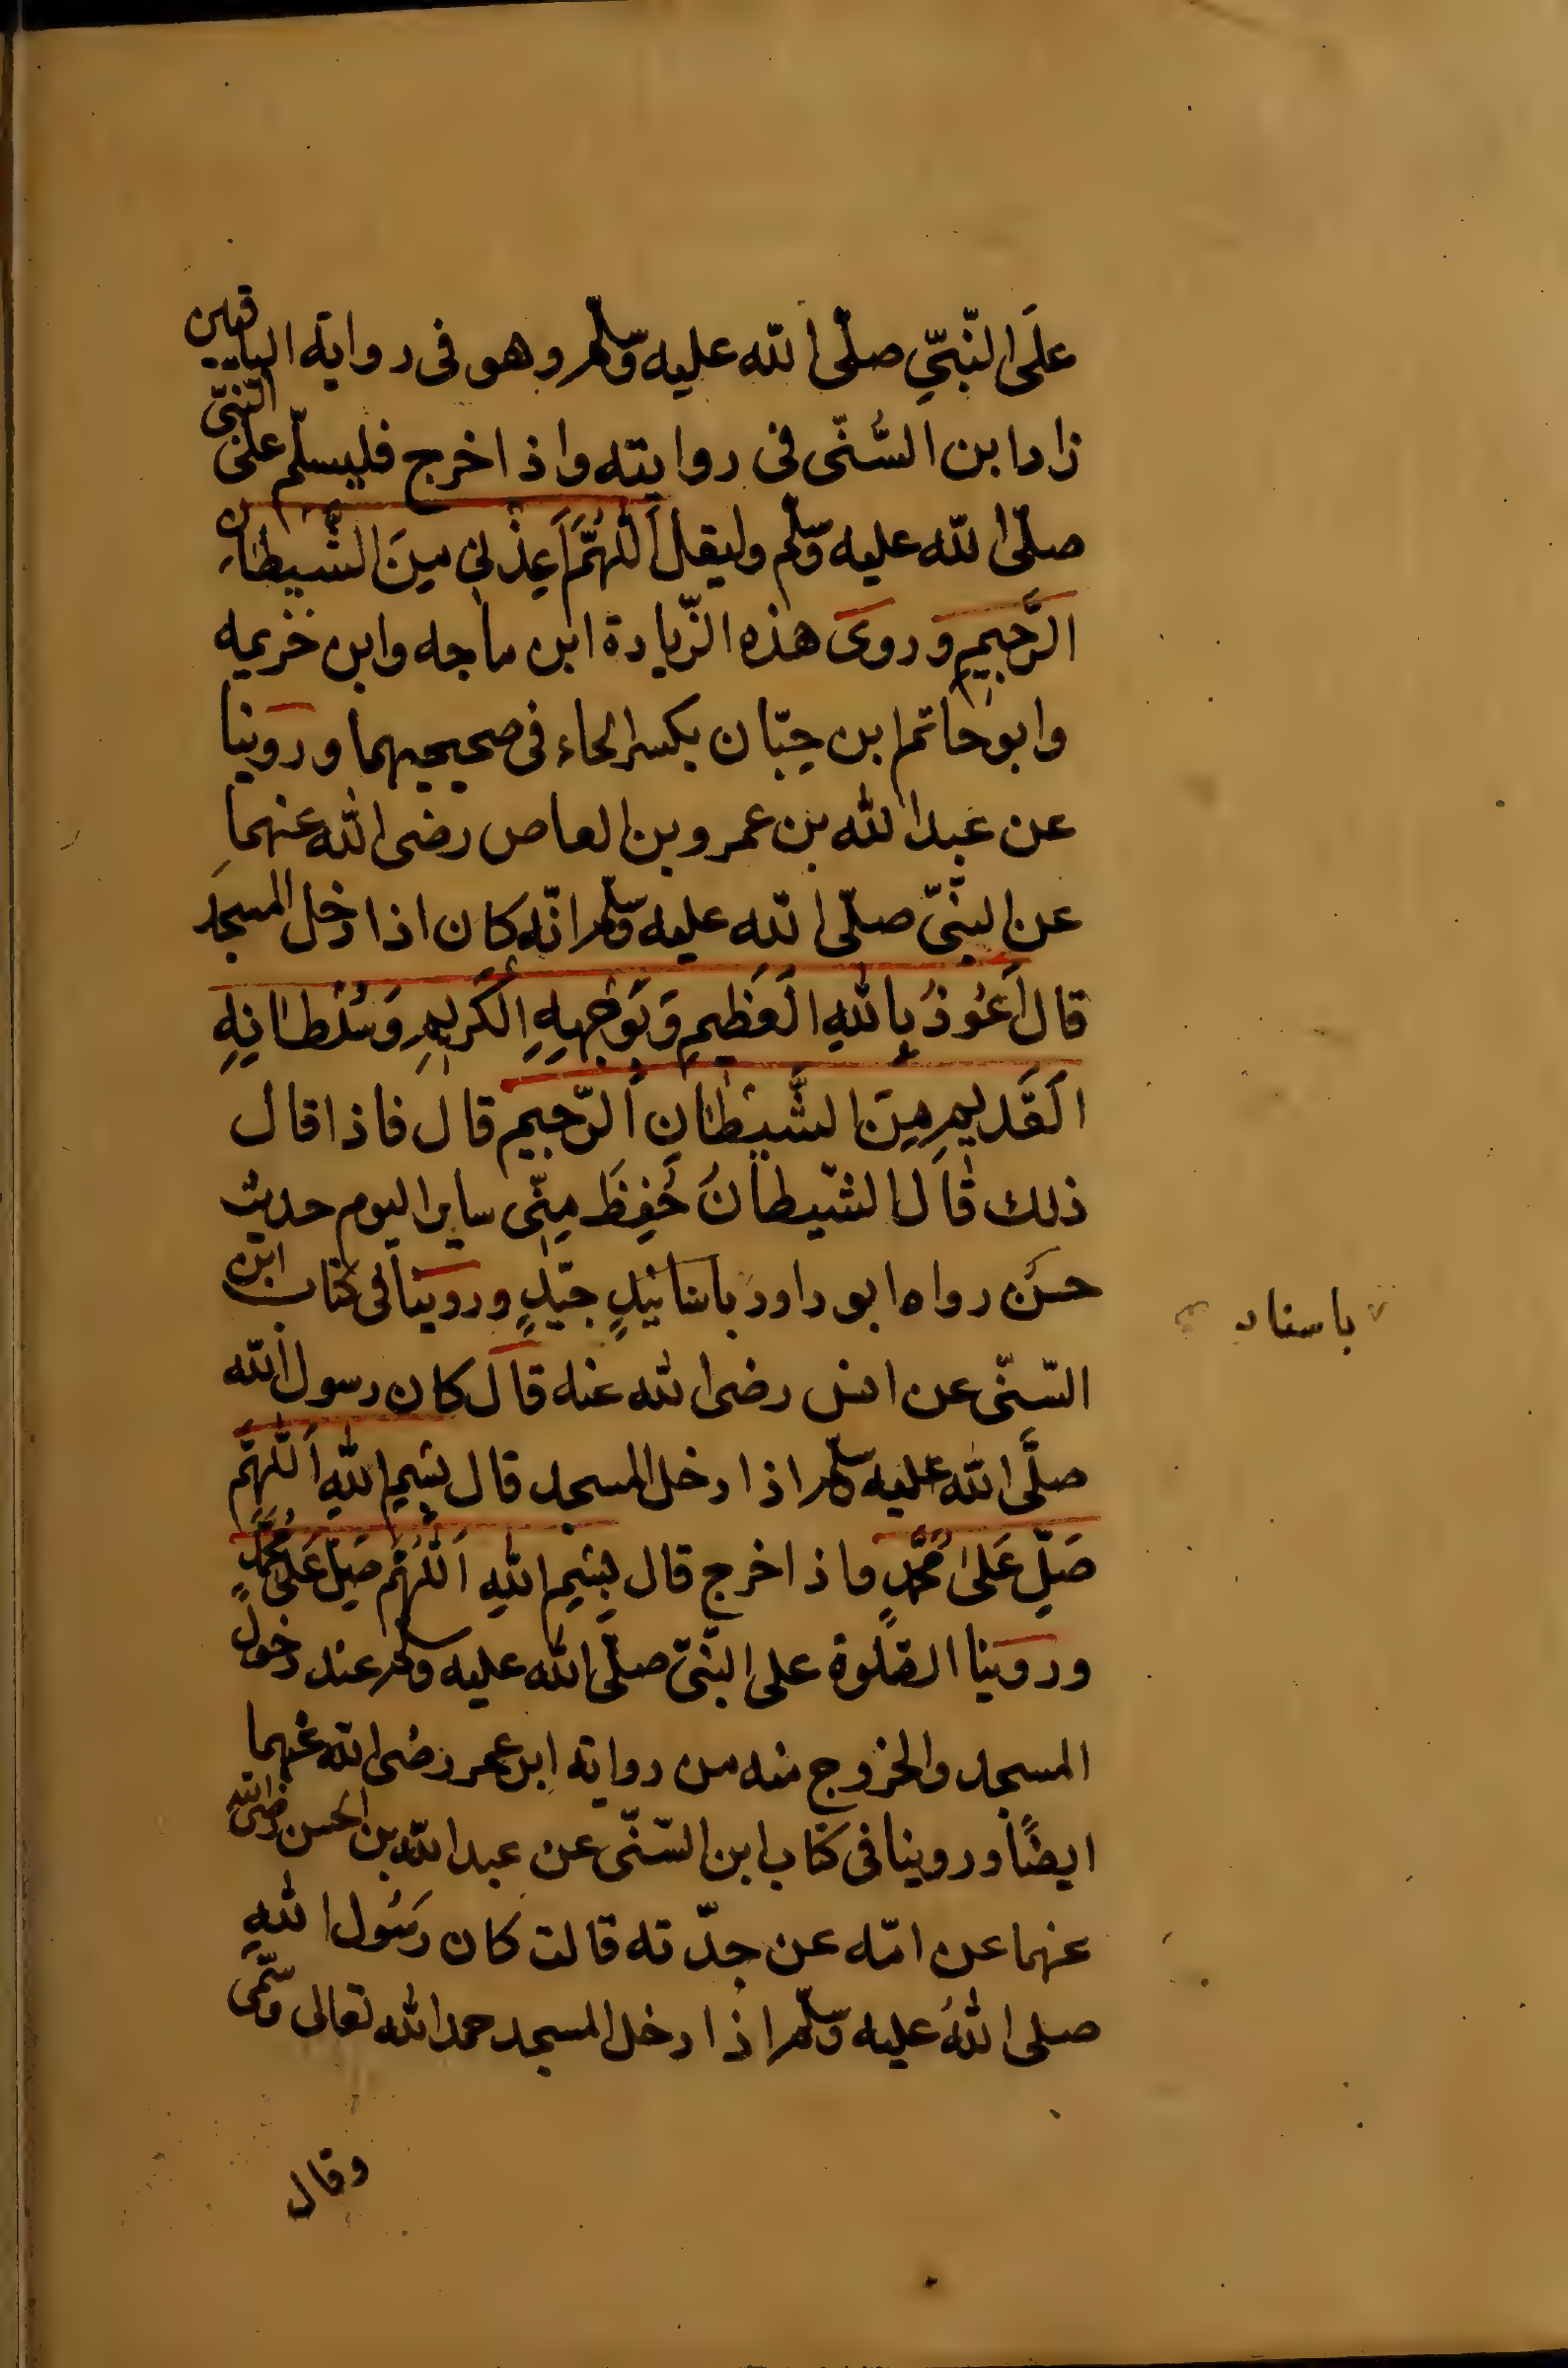 علَى النّبيِّ صلّى الله عليه وسلّم وهو فى رواية الباقين
زاد ابن السُّنّى فى روايته واذا خرج فليسلّم على النّبيّ
صلّى الله عليه وسلّم وليقل اَللّٰهُمَّ اَعِذْنِي مِنَ الشَّيطَانِ
الرَّجِيمِ وروى هذه الزّيادة ابن ماجه وابن خزيمه
وابو حاتم ابن حِبّان بكسر الحاء فى صحيحيهما وروينا
عن عبد الله بن عمرو بن العاص رضى الله عنهما
عن النبيّ صلّى الله عليه وسلّم انّه كان اذا دخل المسجد
قال اَعُوذُ بِاللهِ العَظِيمِ وَبِوَجْهِهِ الكَرِيمِ وَسُلْطَانِهِ
القَدِيمِ مِنَ الشَّيْطَانِ الرَّجيمِ قال فاذا قال
ذلك قال الشّيطانُ حُفِظَ مِنّى ساير اليوم حديث
حسَن رواه ابو داود باسانيدٍ جيّدٍ وروينا فى كتاب ابن
باسناد
السّنّى عن انس رضى الله عنه قال كان رسول الله
صلَّى الله عليه وسلّم اذا دخل المسجد قال بسْمِ اللهِ اَللّٰهُمَّ
صَلِّ عَلىٰ مُحَمَّدٍ واذا خرج قال بِسْمِ اللهِ اَللّٰهُمَّ صَلِّ عَلىٰ مُحَمَّدٍ
وروينا الصّلوة على النّبيّ صلَّى الله عليه وسلّم عند دخول
المسجد والخروج منه من رواية ابن عمر رضى الله عنهما
ايضًا وروينا فى كتاب ابن السّنّى عن عبد الله بن الحسن رضى الله
عنهما عن امّه عن جدّته قالت كان رَسُول اللهِ
صلى اللهُ عليه وسلّم اذا دخل المسجد حمد الله تعالى وسَمّى
وقال